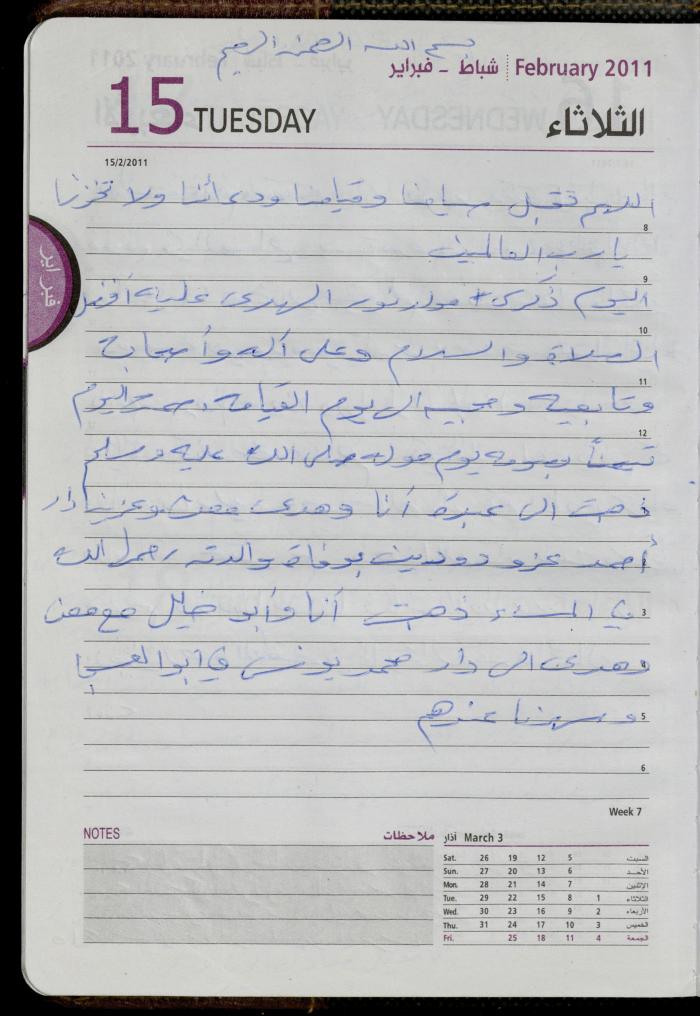 بسم الله الرحمن الرحيم
شباط - فبراير February 2011
15 TUESDAY الثلاثاء
15/2/2011
اللهم تقبل صيامنا وقيامنا ودعائنا ولا تخزنا
8
يا رب العالمين
9
اليوم ذكرى مولد نور الهدى عليه أفضل
فبراير
10
الصلاة والسلام وعلى آله وأصحابه
11
وتابعيه ومحبيه الى يوم القيامة. صمت اليوم
12
تيمناً بصومه يوم مولده صلى الله عليه وسلم
ذهبت الى عبدة أنا وهدى ومعن وعزينا دار
أحمد عزو دودين بوفاة والدته رحمها الله
3 في المساء ذهبت أنا وأبو خليل مع معن
وهدى الى دار محمد يونس في أبو العسجا
5 وسهرنا عندهم
6
Week 7
NOTES ملاحظات
آذار March 3
Sat. 26 19 12 5 السبت
Sun. 27 20 13 6 الأحد
Mon. 28 21 14 7 الإثنين
Tue. 29 22 15 8 1 الثلاثاء
Wed. 30 23 16 9 2 الأربعاء
Thu. 31 24 17 10 3 الخميس
Fri. 25 18 11 4 الجمعة